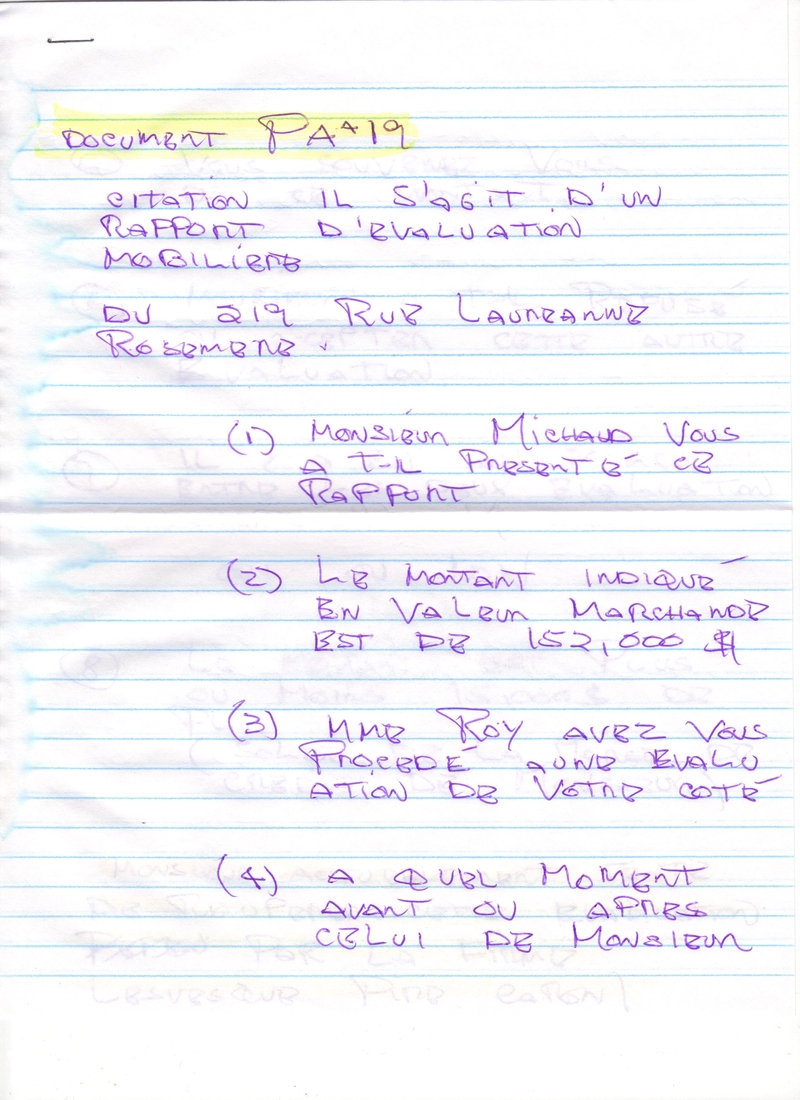 DOCUMENT PA-19
CITATION IL S'AGIT D'UN
RAPPORT D'EVALUATION
MOBILIÈRE
DU 219 RUE LAUREANNE
ROSEMERE.
(1) MONSIEUR MICHAUD VOUS
A T-IL PRESENTÉ CE
RAPPORT
(2) LE MONTANT INDIQUÉ
EN VALEUR MARCHANDE
EST DE 152,000 $
(3) MME ROY AVEZ VOUS
PROCEDÉ A UNE EVALU
ATION DE VOTRE COTÉ
(4) A QUEL MOMENT
AVANT OU APRES
CELUI DE MONSIEUR